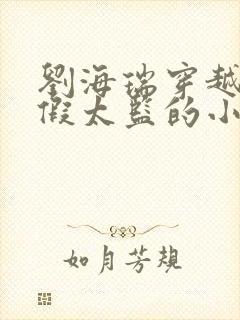 劉海瑞穿越
假太監的小
如月芳規